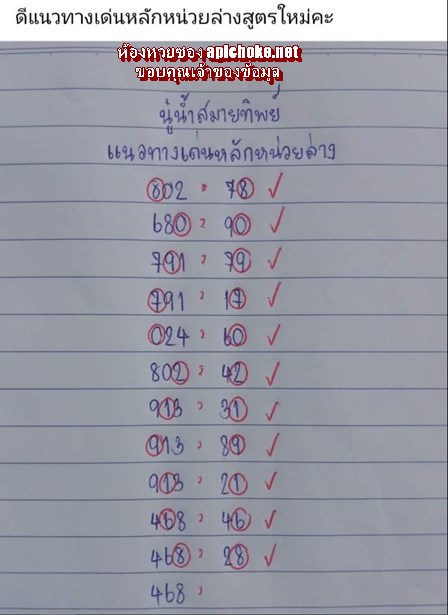 ดีแนวทางเด่นหลักหน่วยล่างสูตรใหม่คะ
ห้องหวยซอง apichoke.net
ขอบคุณเจ้าของข้อมูล
นู๋น้ำสมายทิพย์
แนวทางเด่นหลักหน่วยล่าง
802 , 78 ✓
680 , 90 ✓
791 , 79 ✓
791 , 17 ✓
024 , 60 ✓
802 , 42 ✓
913 , 31 ✓
913 , 89 ✓
913 , 21 ✓
468 , 46 ✓
468 , 28 ✓
468 ,